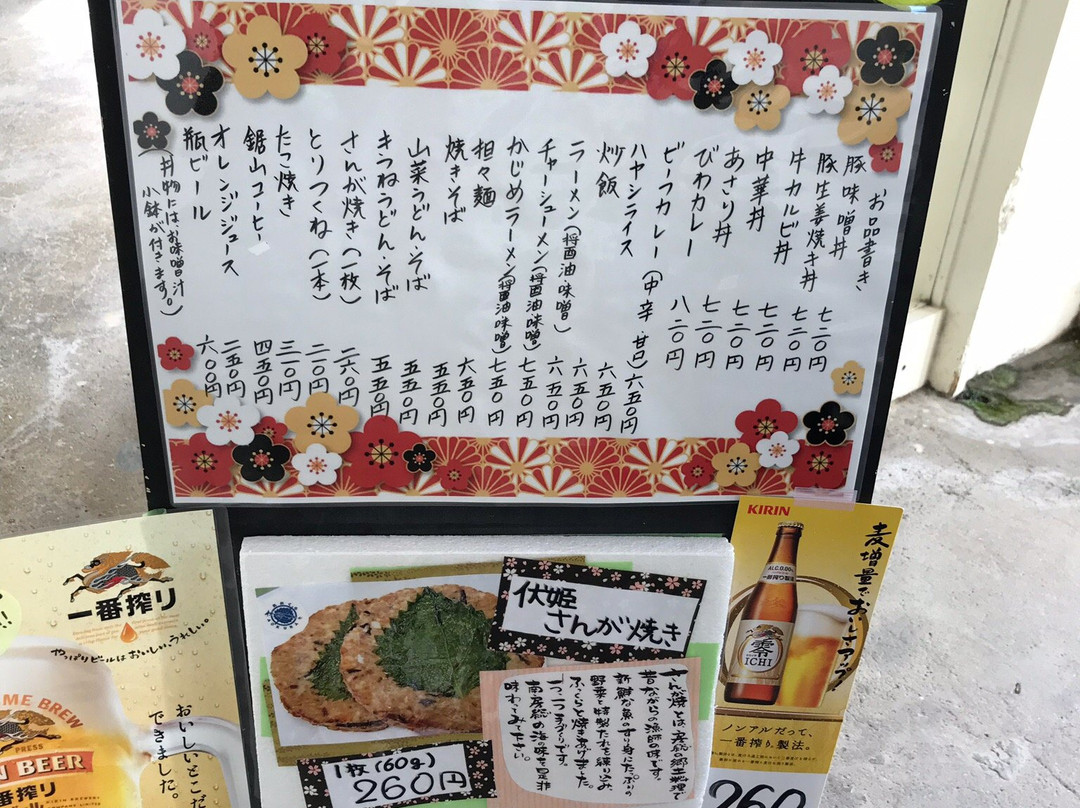 お品書き
豚味噌丼 七二〇円
豚生姜焼き丼 七二〇円
牛カルビ丼 七二〇円
中華丼 七二〇円
あさり丼 七二〇円
びわカレー 八二〇円
ビーフカレー(中辛・甘口) 六五〇円
ハヤシライス 六五〇円
炒飯 六五〇円
ラーメン(醤油 味噌) 六五〇円
チャーシューメン(醤油 味噌) 七五〇円
かじめラーメン(醤油 味噌) 七五〇円
担々麺 六五〇円
焼きそば 五五〇円
山菜うどん・そば 五五〇円
きつねうどん・そば 五五〇円
さんが焼き(一枚) 二六〇円
とりつくね(一本) 二〇〇円
たこ焼き 三〇〇円
鋸山コーヒー 四五〇円
オレンジジュース 二五〇円
瓶ビール 六〇〇円
(丼物には、お味噌汁
小鉢が付きます。)
一番搾り
やっぱりビールはおいしい。うれしい。
おいしいとこだ
できました。
ME BREW
PRESS
N BEER
番搾り
伏姫
さんが焼き
さんが焼とは、房総の郷土料理で
昔ながらの漁師の味です。
新鮮な魚のすり身にたっぷりの
野菜と特製だれを練り込み
ふっくらと焼きあげました。
一つ一つ手づくりです。
南房総の海の味を是非
味わってみて下さい。
1枚(60g)
260円
KIRIN
麦増量でおいしさアップ!
ALC.0.00%
一番搾り製法
零
ICHI
ノンアルだって、
一番搾り製法。
260